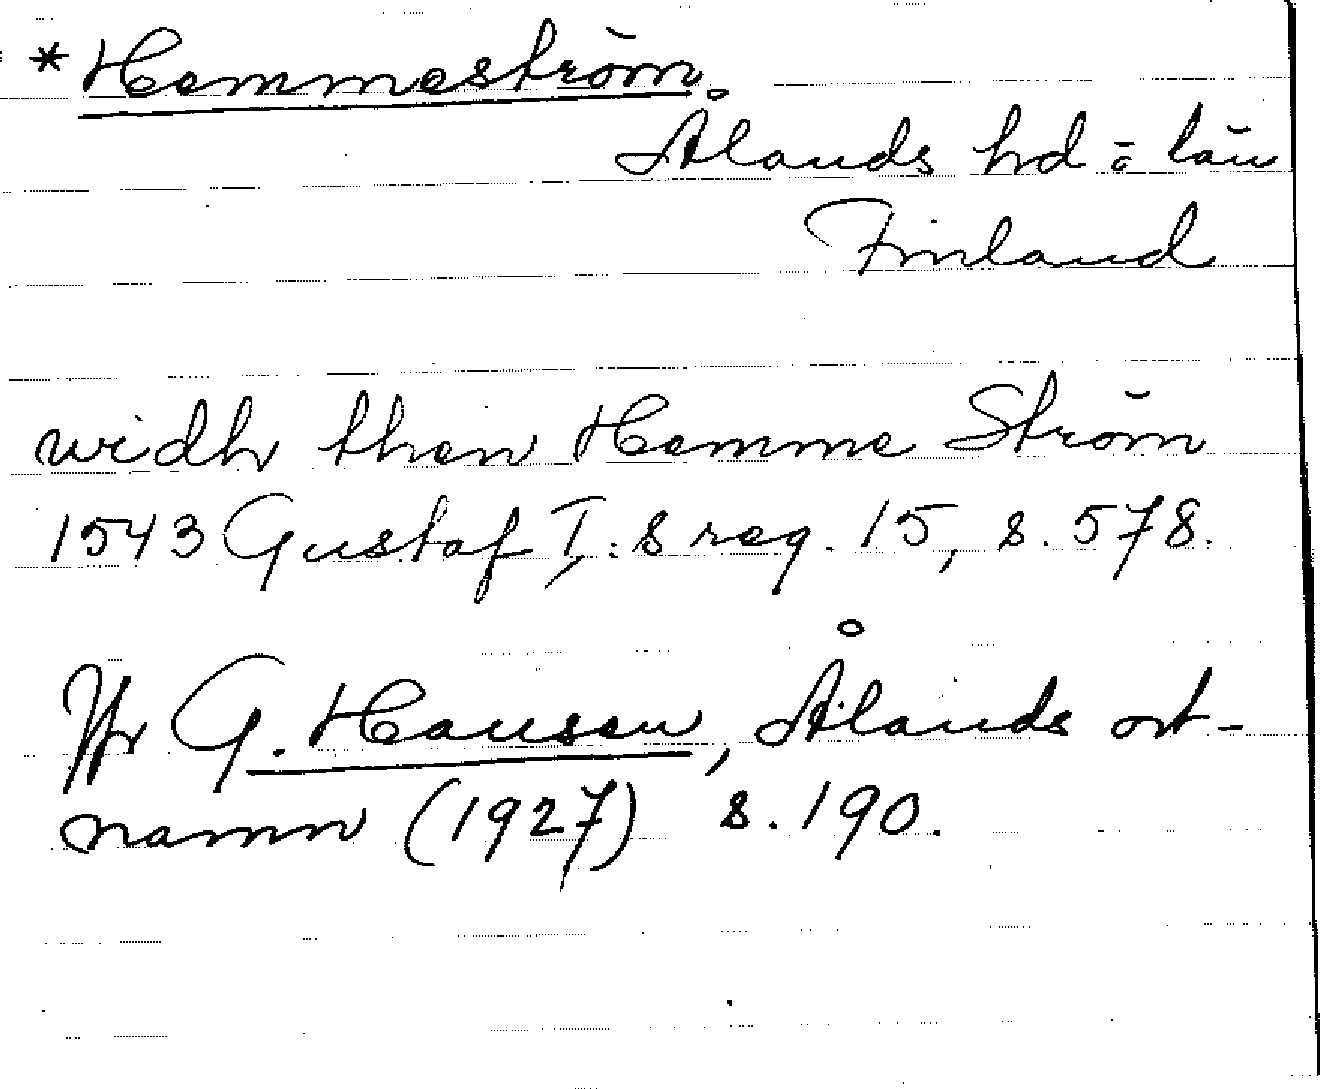 * Hemmeström
Ålands hd o. län
Finland
widh then Hemme Ström
1543 Gustaf I:s reg. 15, s. 578.
Jfr G. Hausen, Ålands ort-
namn (1927) s. 190.